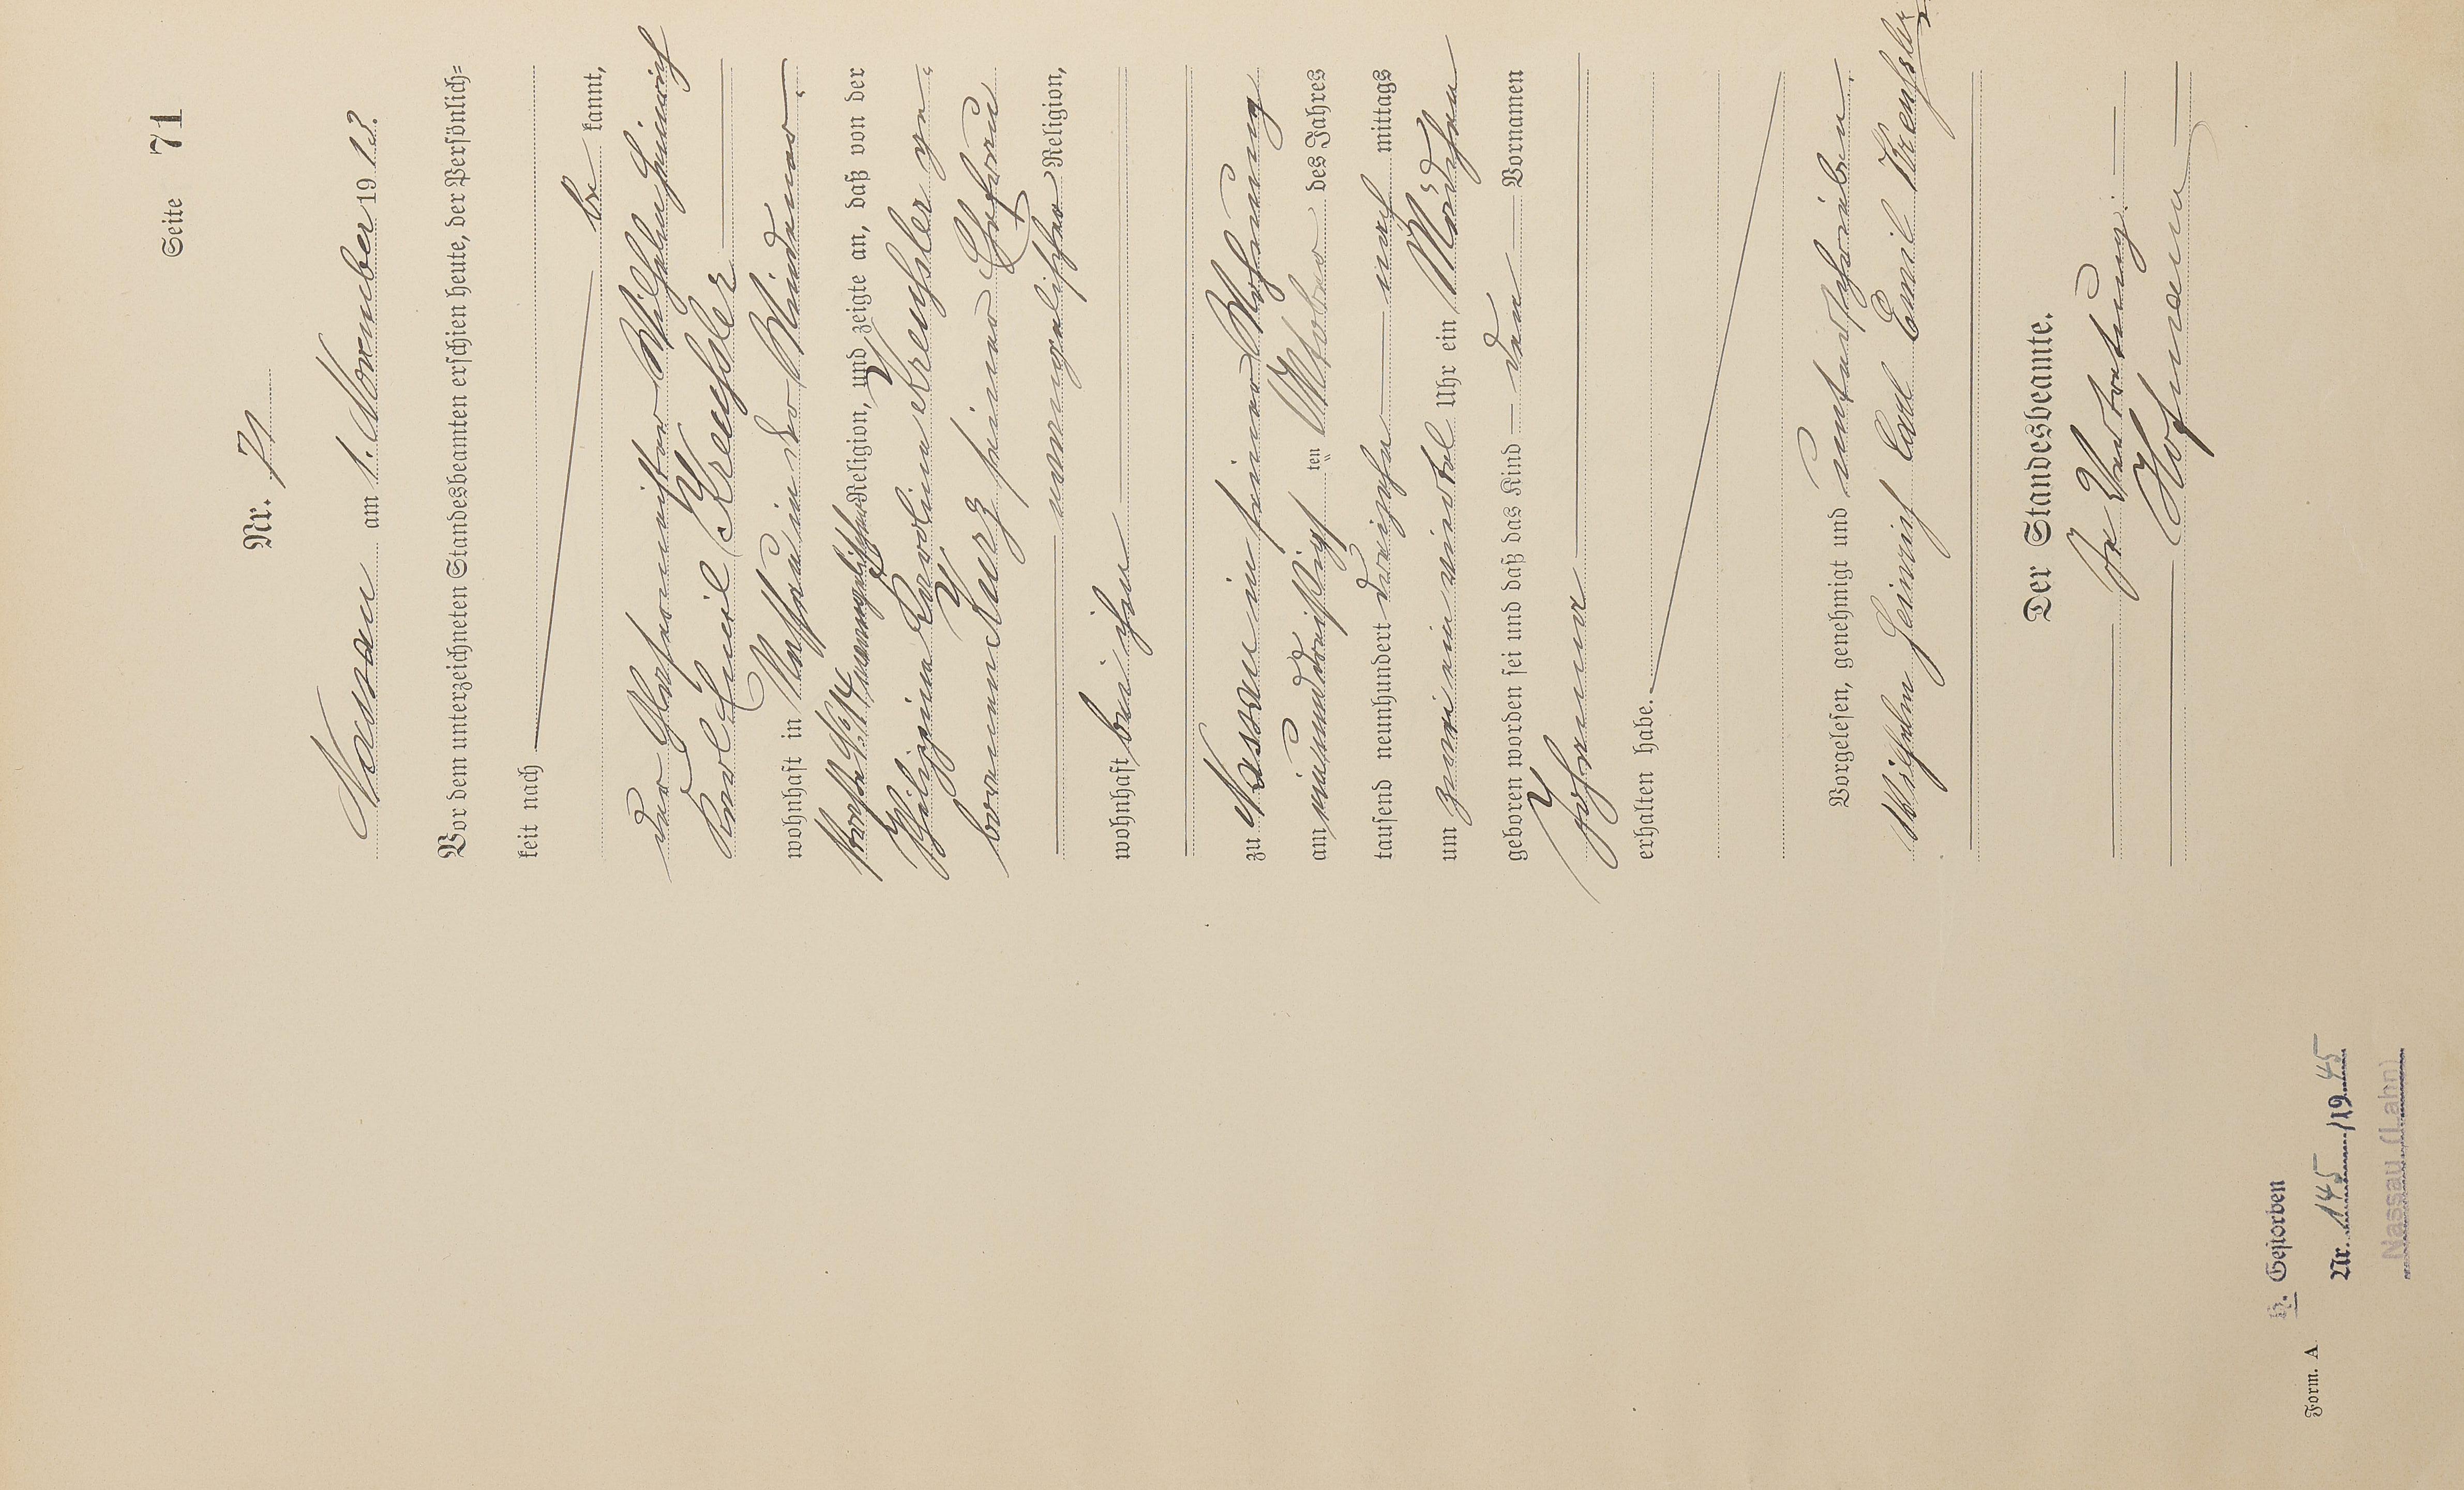 Seite 71
Nr. 71
Nassau am 1. November 1913.
Vor dem unterzeichneten Standesbeamten erschien heute, der Persönlich=
keit nach
be kannt,
der Wilhelm Heinrich
Karl Emil Kreuzler
wohnhaft in Nassau in der Windener-
straße No 14, evangelischer Religion, und zeigte an, daß von der
Philippine Karoline Kreuzler ge-
borenen Kurz seiner Ehefrau
evangelischer Religion,
wohnhaft bei ihm
zu Nassau in seiner Wohnung
am einunddreißigsten Oktober des Jahres
tausend neunhundert dreizehn nach mittags
um zwei ein viertel Uhr ein Mädchen
geboren worden sei und daß das Kind den Vornamen
Johanna
erhalten habe.
Vorgelesen, genehmigt und unterschrieben
Wilhelm Heinrich Carl Emil
Der Standesbeamte.
In Vertretung:
Hofmann
Form. A.
Gestorben
Nr. 145/1945
Nassau (Lahn)